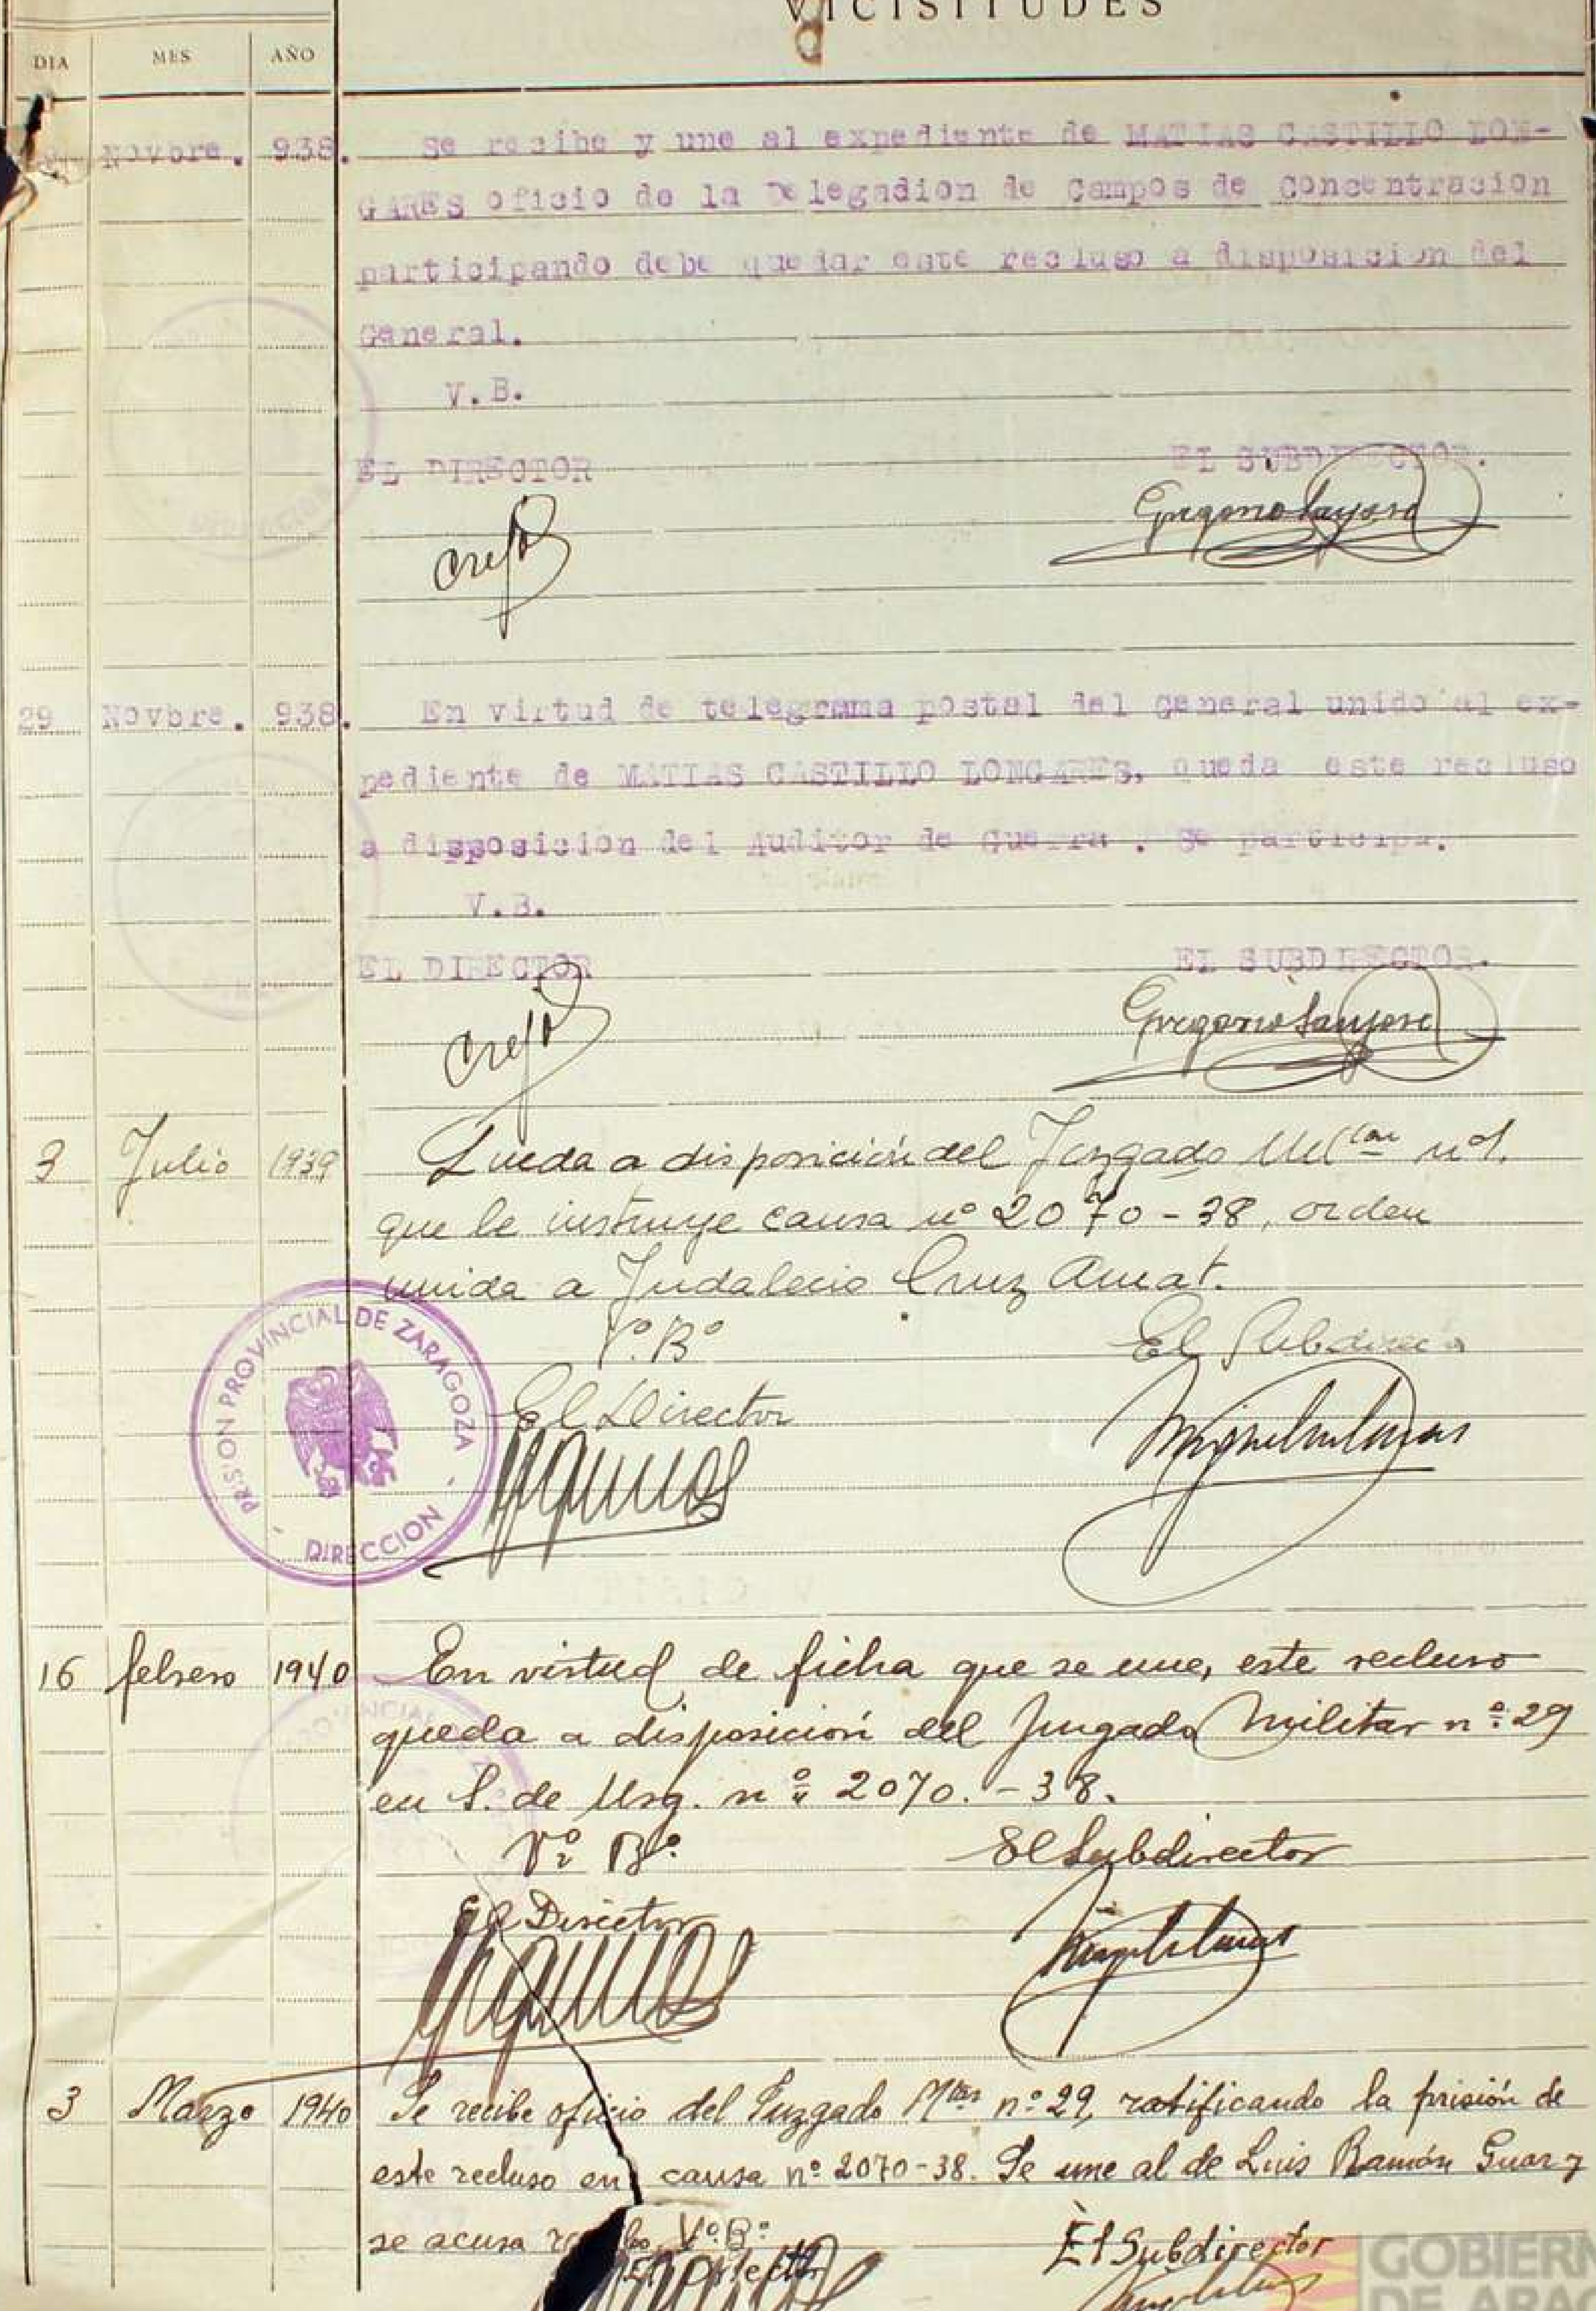 VICISITUDES
DIA MES AÑO
Novbre. 938. Se recibe y une al expediente de MATIAS CASTILLO LON-
GARES oficio de la Delegadion de Campos de Concentracion
participando debe quedar este recluso a disposicion del
General.
V.B.
EL DIRECTOR EL SUBDIRECTOR.
Crespo Gregorio Sanjosé
29 Novbre. 938. En virtud de telegrama postal del General unido al ex-
pediente de MATIAS CASTILLO LONGARES, queda este recluso
a disposicion del Auditor de Guerra. Se participa.
V.B.
EL DIRECTOR EL SUBDIRECTOR.
Crespo Gregorio Sanjosé
3 Julio 1939 Queda a disposición del Juzgado nº 1.
que le instruye causa nº 2070-38, orden
unida a Indalecio Cruz Amat.
Vº Bº El Subdirector
El Director
PRISION PROVINCIAL DE ZARAGOZA
- DIRECCION -
16 febrero 1940 En virtud de ficha que se une, este recluso
queda a disposición del Juzgado Militar nº 29
en S. de Urg. nº 2070.-38.
Vº Bº El Subdirector
El Director
3 Marzo 1940 Se recibe oficio del Juzgado Mtar nº 29, ratificando la prisión de
este recluso en causa nº 2070-38. Se une al de Luis Ramón Guar y
se acusa Vº Bº El Subdirector
El Director
GOBIERN
DE ARAG